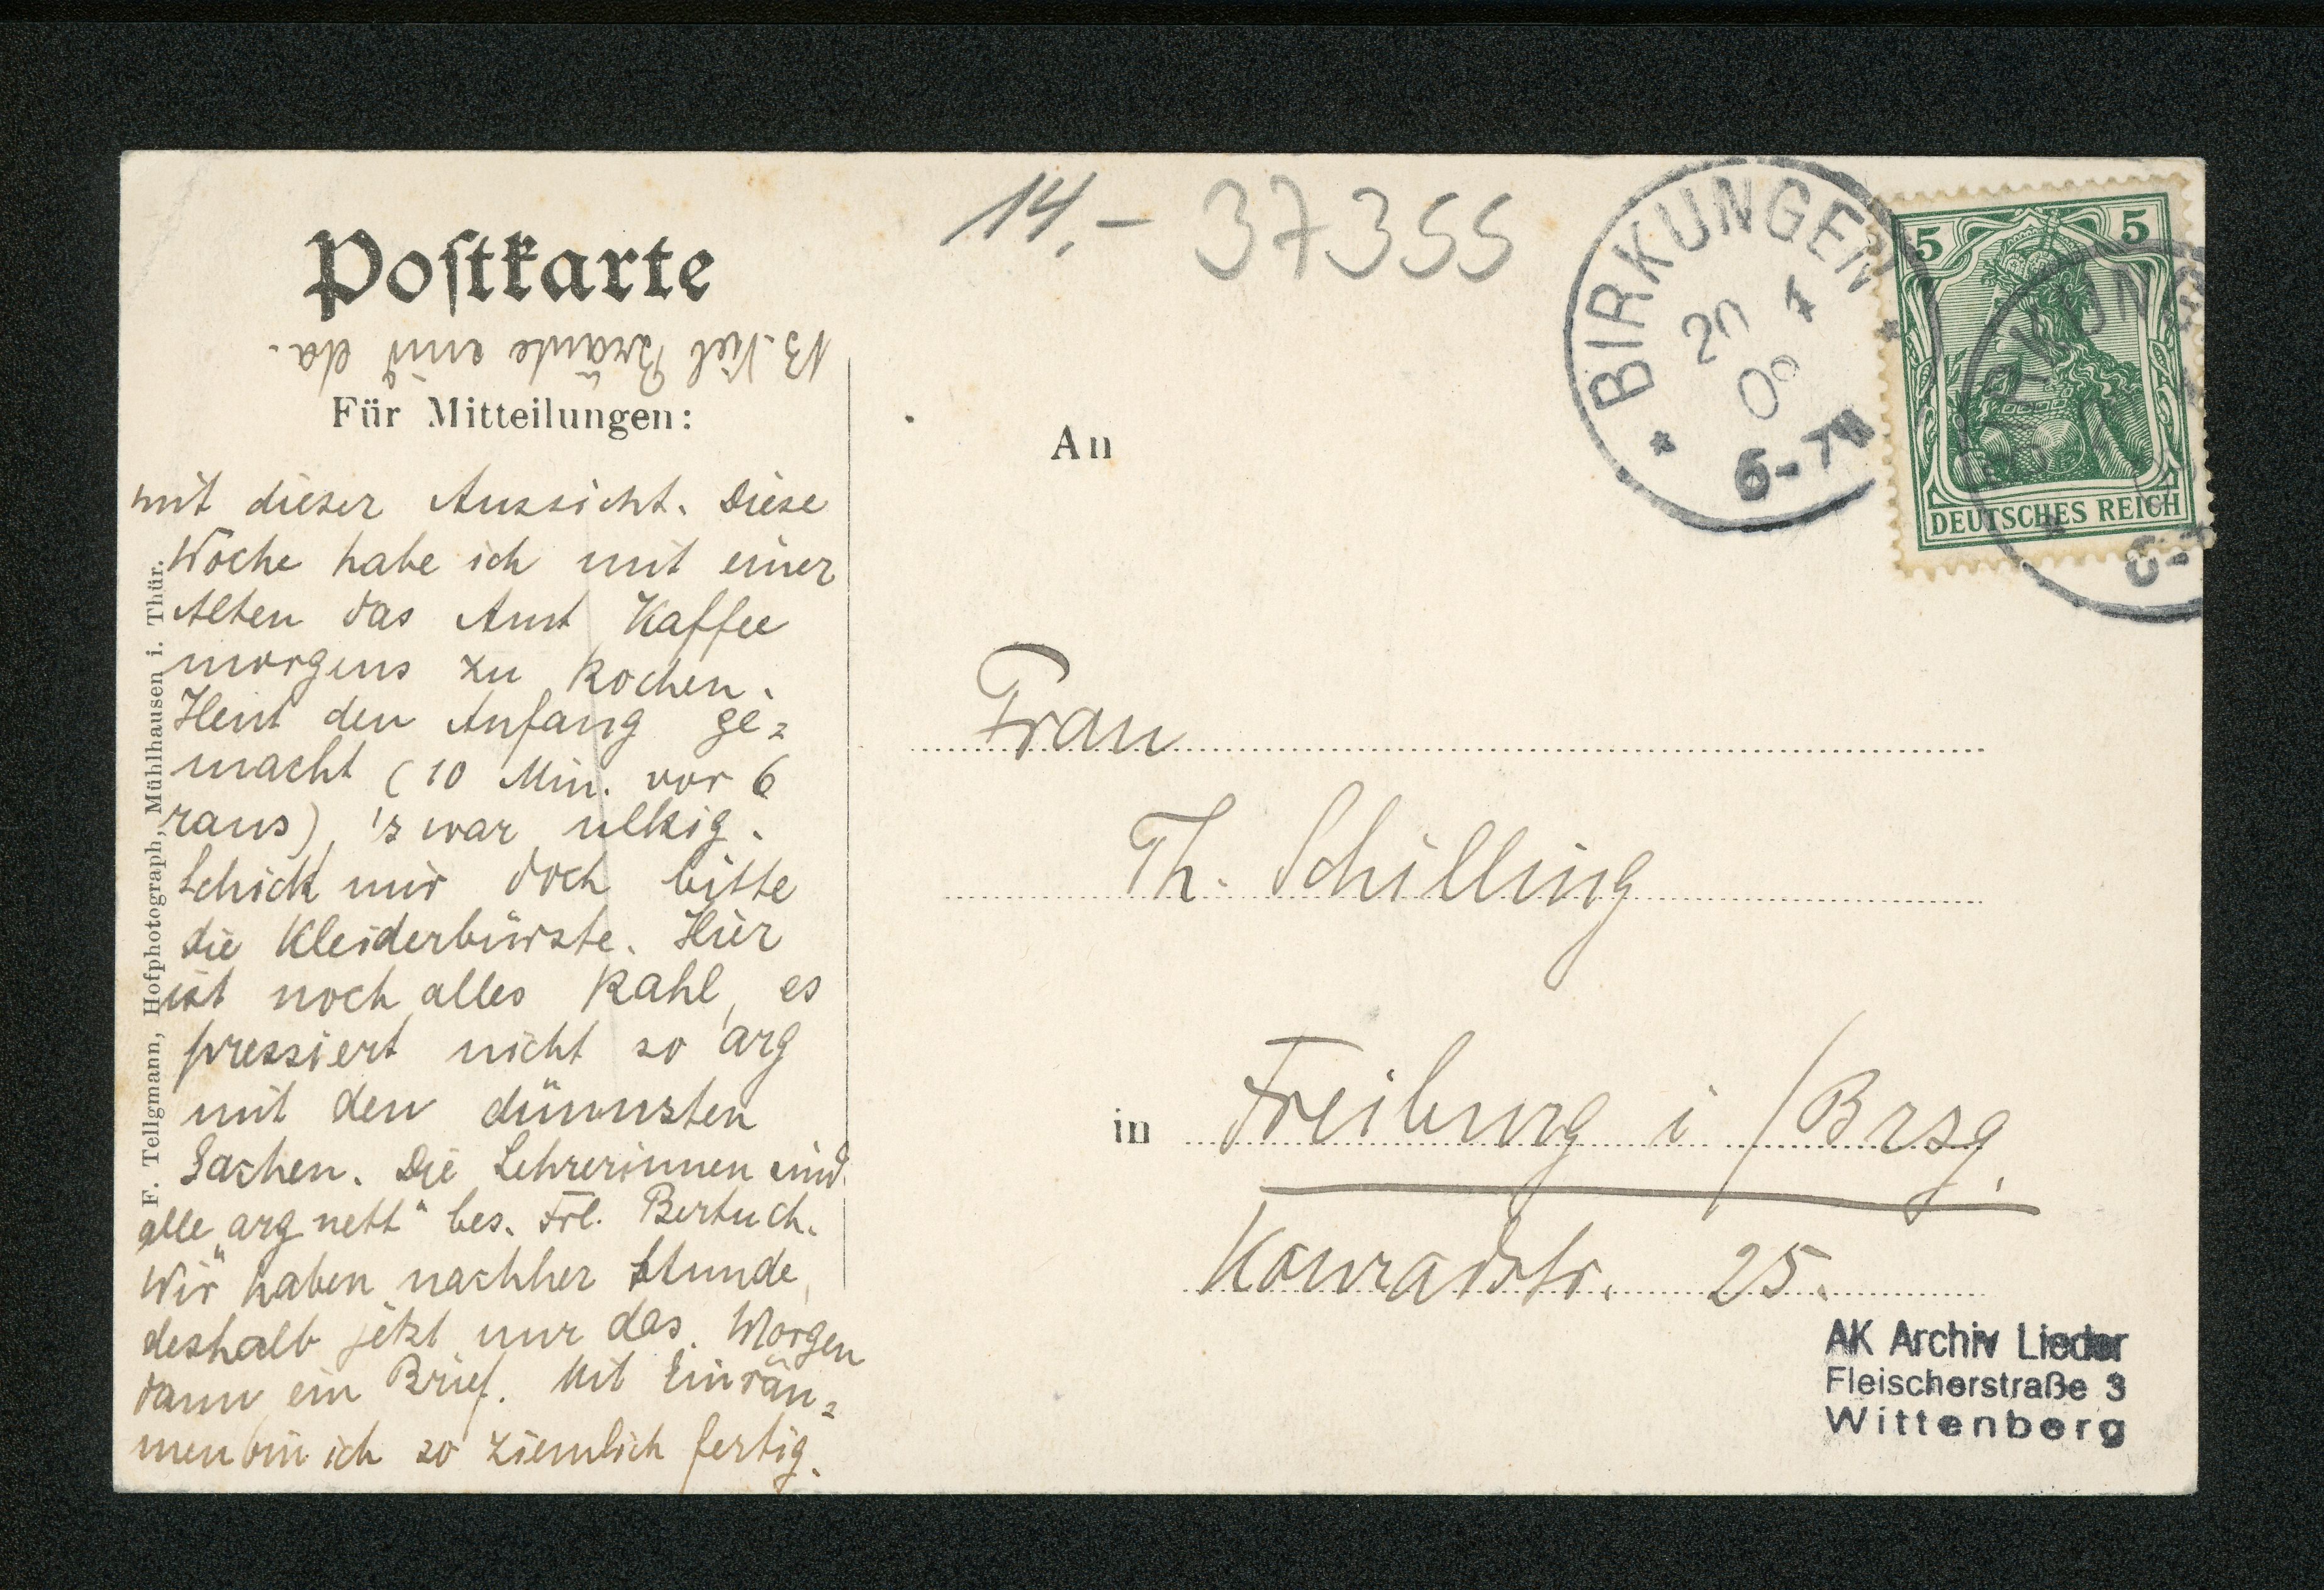 14.- 37355
BIRKUNGEN
20 4
6-7N
5 5
DEUTSCHES REICH
Postkarte
NB. Viel Bräute sind da.
Für Mitteilungen:
mit dieser Aussicht. Diese
Woche habe ich mit einer
Alten das Amt Kaffee
morgens zu kochen.
Heut den Anfang ge=
macht (10 Min. vor 6
raus), 's war ulkig.
Schick mir doch bitte
die Kleiderbürste. Hier
ist noch alles kahl, es
pressiert nicht so arg
mit den dünnsten
Sachen. Die Lehrerinnen sind
alle „arg nett“ bes. Frl. Bertuch.
Wir haben nachher Stunde,
deshalb jetzt nur das. Morgen
dann ein Brief. Mit Einräu=
men bin ich so ziemlich fertig.
F. Tellgmann, Hofphotograph, Mühlhausen i. Thür.
An
Frau
Th. Schilling
in Freiburg i/Brsg.
Konradstr. 25.
AK Archiv Lieder
Fleischerstraße 3
Wittenberg